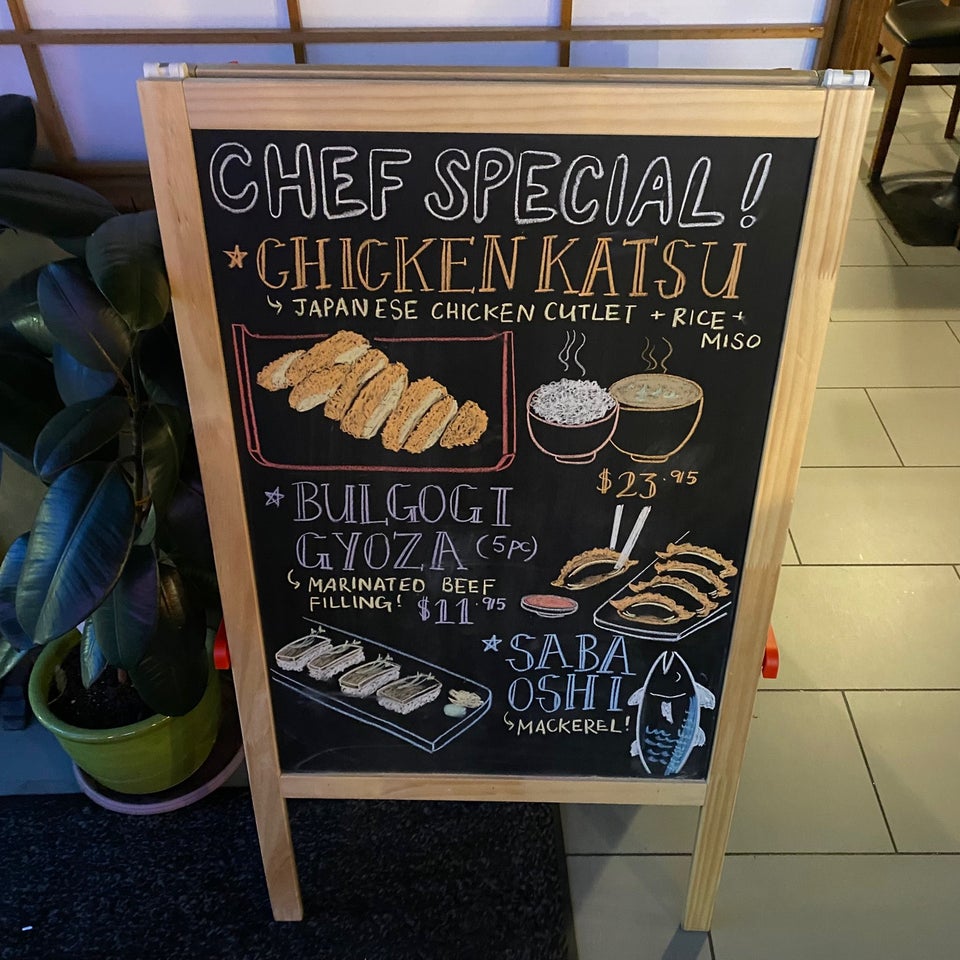 CHEF SPECIAL!
CHICKEN KATSU
JAPANESE CHICKEN CUTLET + RICE +
MISO
$23.95
BULGOGI
GYOZA (5pc)
MARINATED BEEF
FILLING! $11.95
SABA
OSHI
MACKEREL!